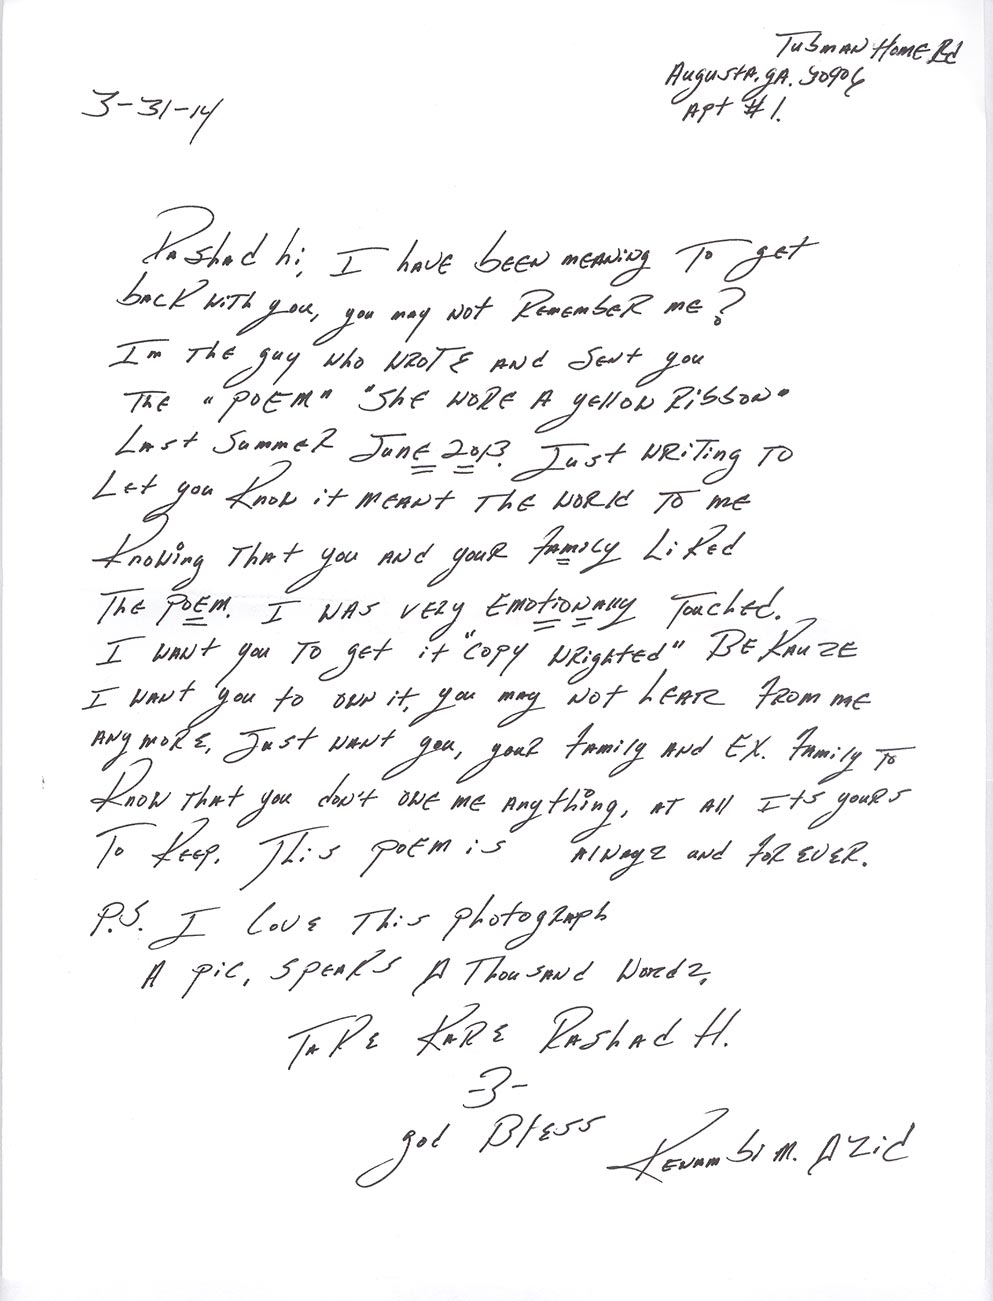 Tubman Home Rd
Augusta, GA. 30906
Apt #1.
3-31-14
Rashad hi, I have been meaning To get
back with you, you may not Remember me?
I'm The guy who wrote and sent you
The "POEM" "She wore A yellow Ribbon"
Last Summer June 2013. Just writing TO
Let you Know it meant The world To me
Knowing That you and your family LiKed
The POEM. I was very Emotionally Touched.
I want you TO get it "Copy wrighted" BEKAUZE
I want you to own it, you may not hear from me
Anymore, Just want you, your family and EX. family To
Know That you don't owe me Anything, at all It's yours
To Keep. This poem is Alwayz and forever.
P.S. I Love This photograph
A pic, speaks A Thousand wordz.
TaKe Kare Rashad H.
-3-
god Bless
M. Azid